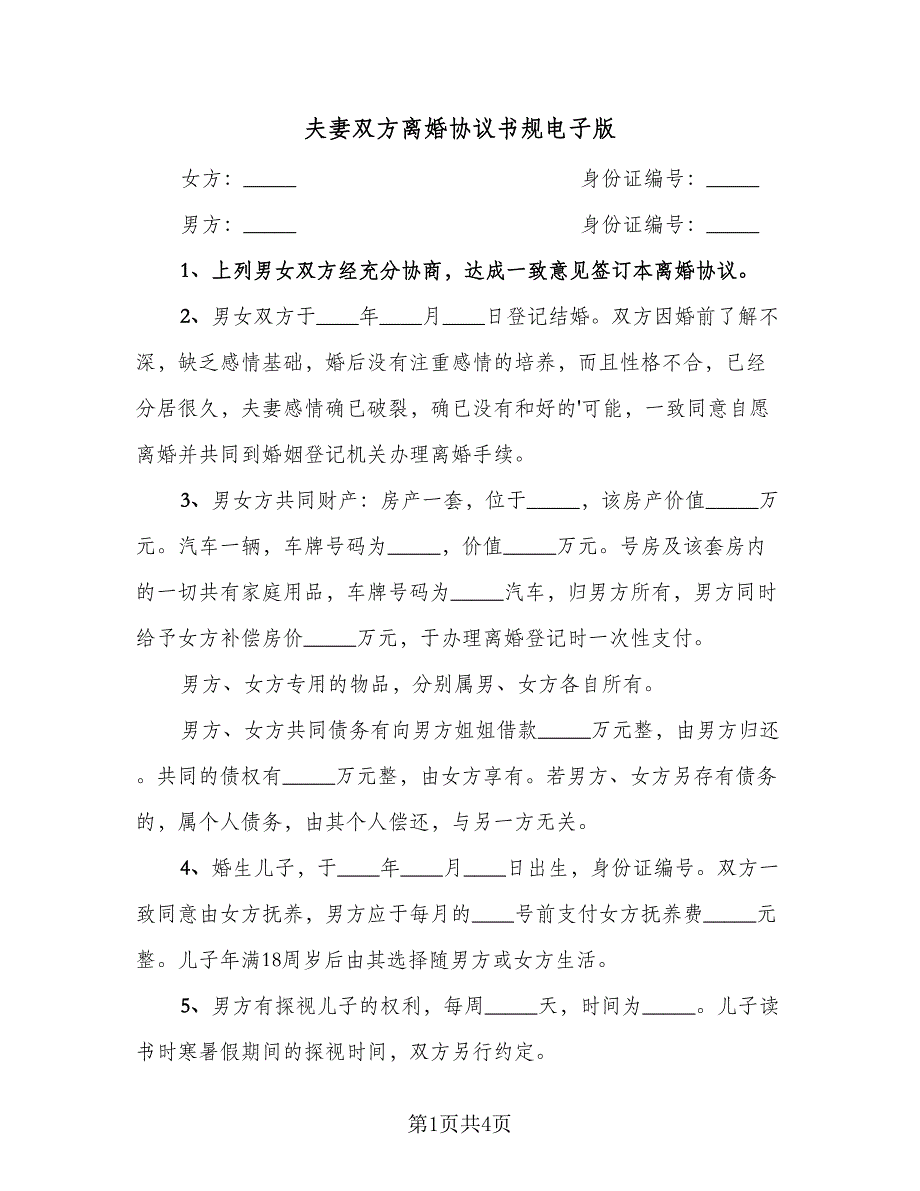 夫妻双方离婚协议书规电子版
女方：_____ 身份证编号：_____
男方：_____ 身份证编号：_____
1、上列男女双方经充分协商，达成一致意见签订本离婚协议。
2、男女双方于____年____月____日登记结婚。双方因婚前了解不
深，缺乏感情基础，婚后没有注重感情的培养，而且性格不合，已经
分居很久，夫妻感情确已破裂，确已没有和好的'可能，一致同意自愿
离婚并共同到婚姻登记机关办理离婚手续。
3、男女方共同财产：房产一套，位于_____，该房产价值_____万
元。汽车一辆，车牌号码为_____，价值_____万元。号房及该套房内
的一切共有家庭用品，车牌号码为_____汽车，归男方所有，男方同时
给予女方补偿房价_____万元，于办理离婚登记时一次性支付。
男方、女方专用的物品，分别属男、女方各自所有。
男方、女方共同债务有向男方姐姐借款_____万元整，由男方归还
。共同的债权有_____万元整，由女方享有。若男方、女方另存有债务
的，属个人债务，由其个人偿还，与另一方无关。
4、婚生儿子，于____年____月____日出生，身份证编号。双方一
致同意由女方抚养，男方应于每月的____号前支付女方抚养费_____元
整。儿子年满18周岁后由其选择随男方或女方生活。
5、男方有探视儿子的权利，每周_____天，时间为_____。儿子读
书时寒暑假期间的探视时间，双方另行约定。
第1页共4页